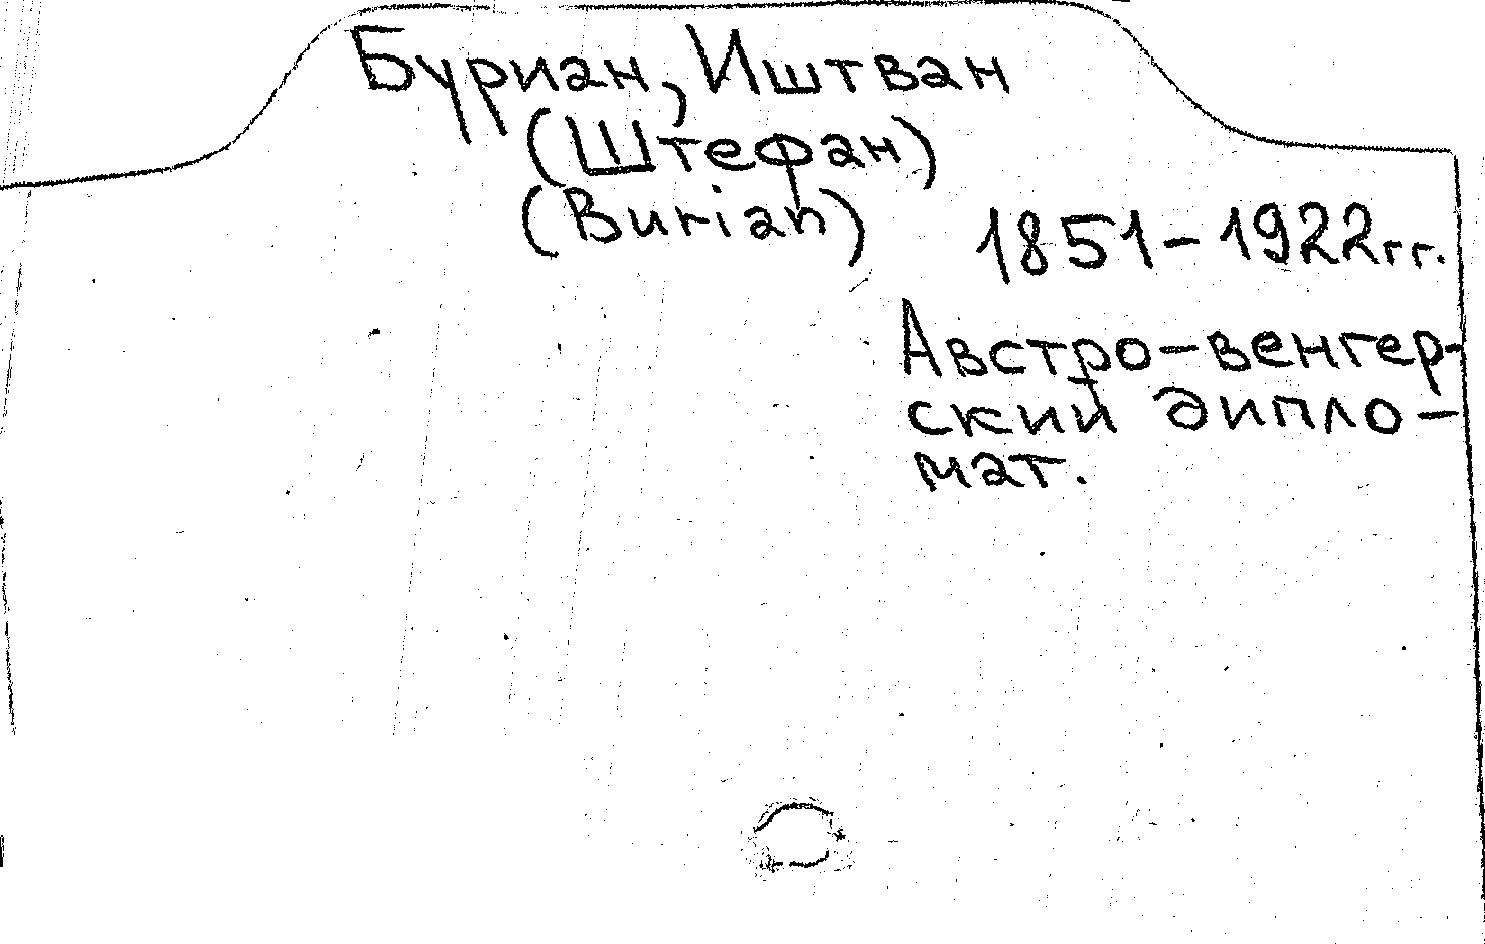 Буриан, Иштван
(Штефан)
(Burian)
1851-1922гг.
Австро-венгер-
ский дипло-
мат.